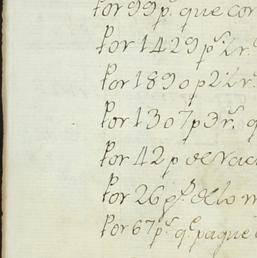 Por 99 p.s que cor
Por 1429 p.s 2 r.s
Por 1890 p 2 r.s
Por 1307 p 3 r.s q
Por 42 p de vac
Por 26 p.s de lo m
Por 67 p.s q.e pague